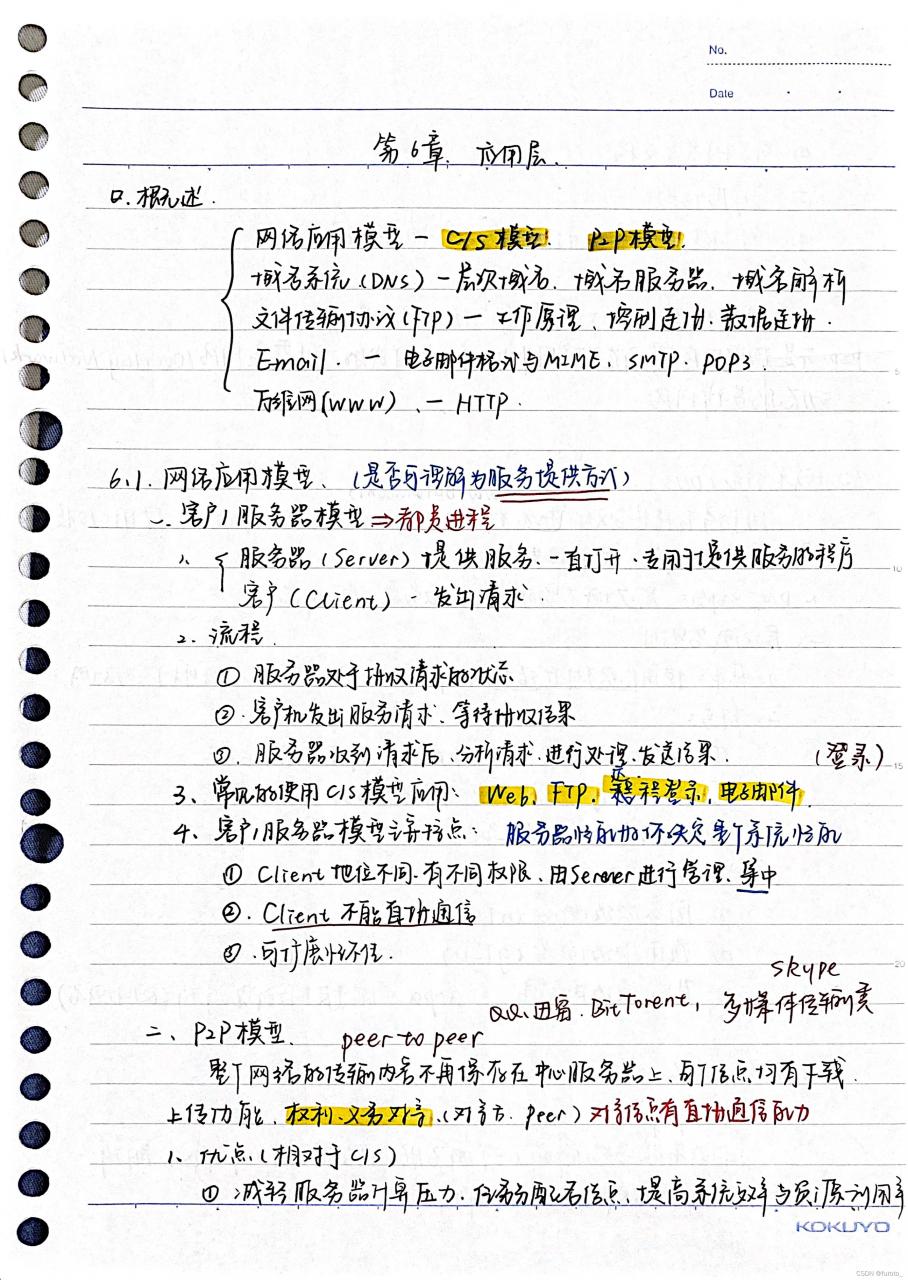 No.
Date
第6章. 应用层.
0. 概述.
网络应用模型 — C/S模型. P2P模型.
域名系统(DNS) — 层次域名. 域名服务器. 域名解析
文件传输协议(FTP) — 工作原理、控制连接. 数据连接.
Email. — 电子邮件格式与MIME、SMTP. POP3.
万维网(WWW)、— HTTP.
5
6.1. 网络应用模型、(是否可理解为服务提供方式)
一. 客户/服务器模型 ⇒都是进程
1. 服务器(Server)提供服务. 一直打开. 专用于提供服务的程序
10
客户(Client) — 发出请求.
2. 流程.
① 服务器处于接收请求的状态
②. 客户机发出服务请求、等待接收结果
③. 服务器收到请求后、分析请求. 进行处理、发送结果.
(登录)
15
远
3、常见的使用C/S模型应用: Web、FTP、程登录、电子邮件
4、客户/服务器模型主要特点: 服务器性能好坏决定整个系统性能
① Client地位不同. 有不同权限、由Server进行管理、集中
②. Client不能直接通信
③. 可扩展性不佳.
20
skype
QQ、迅雷. BitTorent, 多媒体传输类
二、P2P模型. peer to peer
整个网络的传输内容不再保存在中心服务器上、每个结点均有下载.
上传功能、权利、义务对等、(对等方. peer) 对等结点有直接通信能力
1、优点(相对于C/S)
① 减轻服务器计算压力. 任务分配各结点、提高系统效率与资源利用率
KOKUYO
CSDN @fututo_